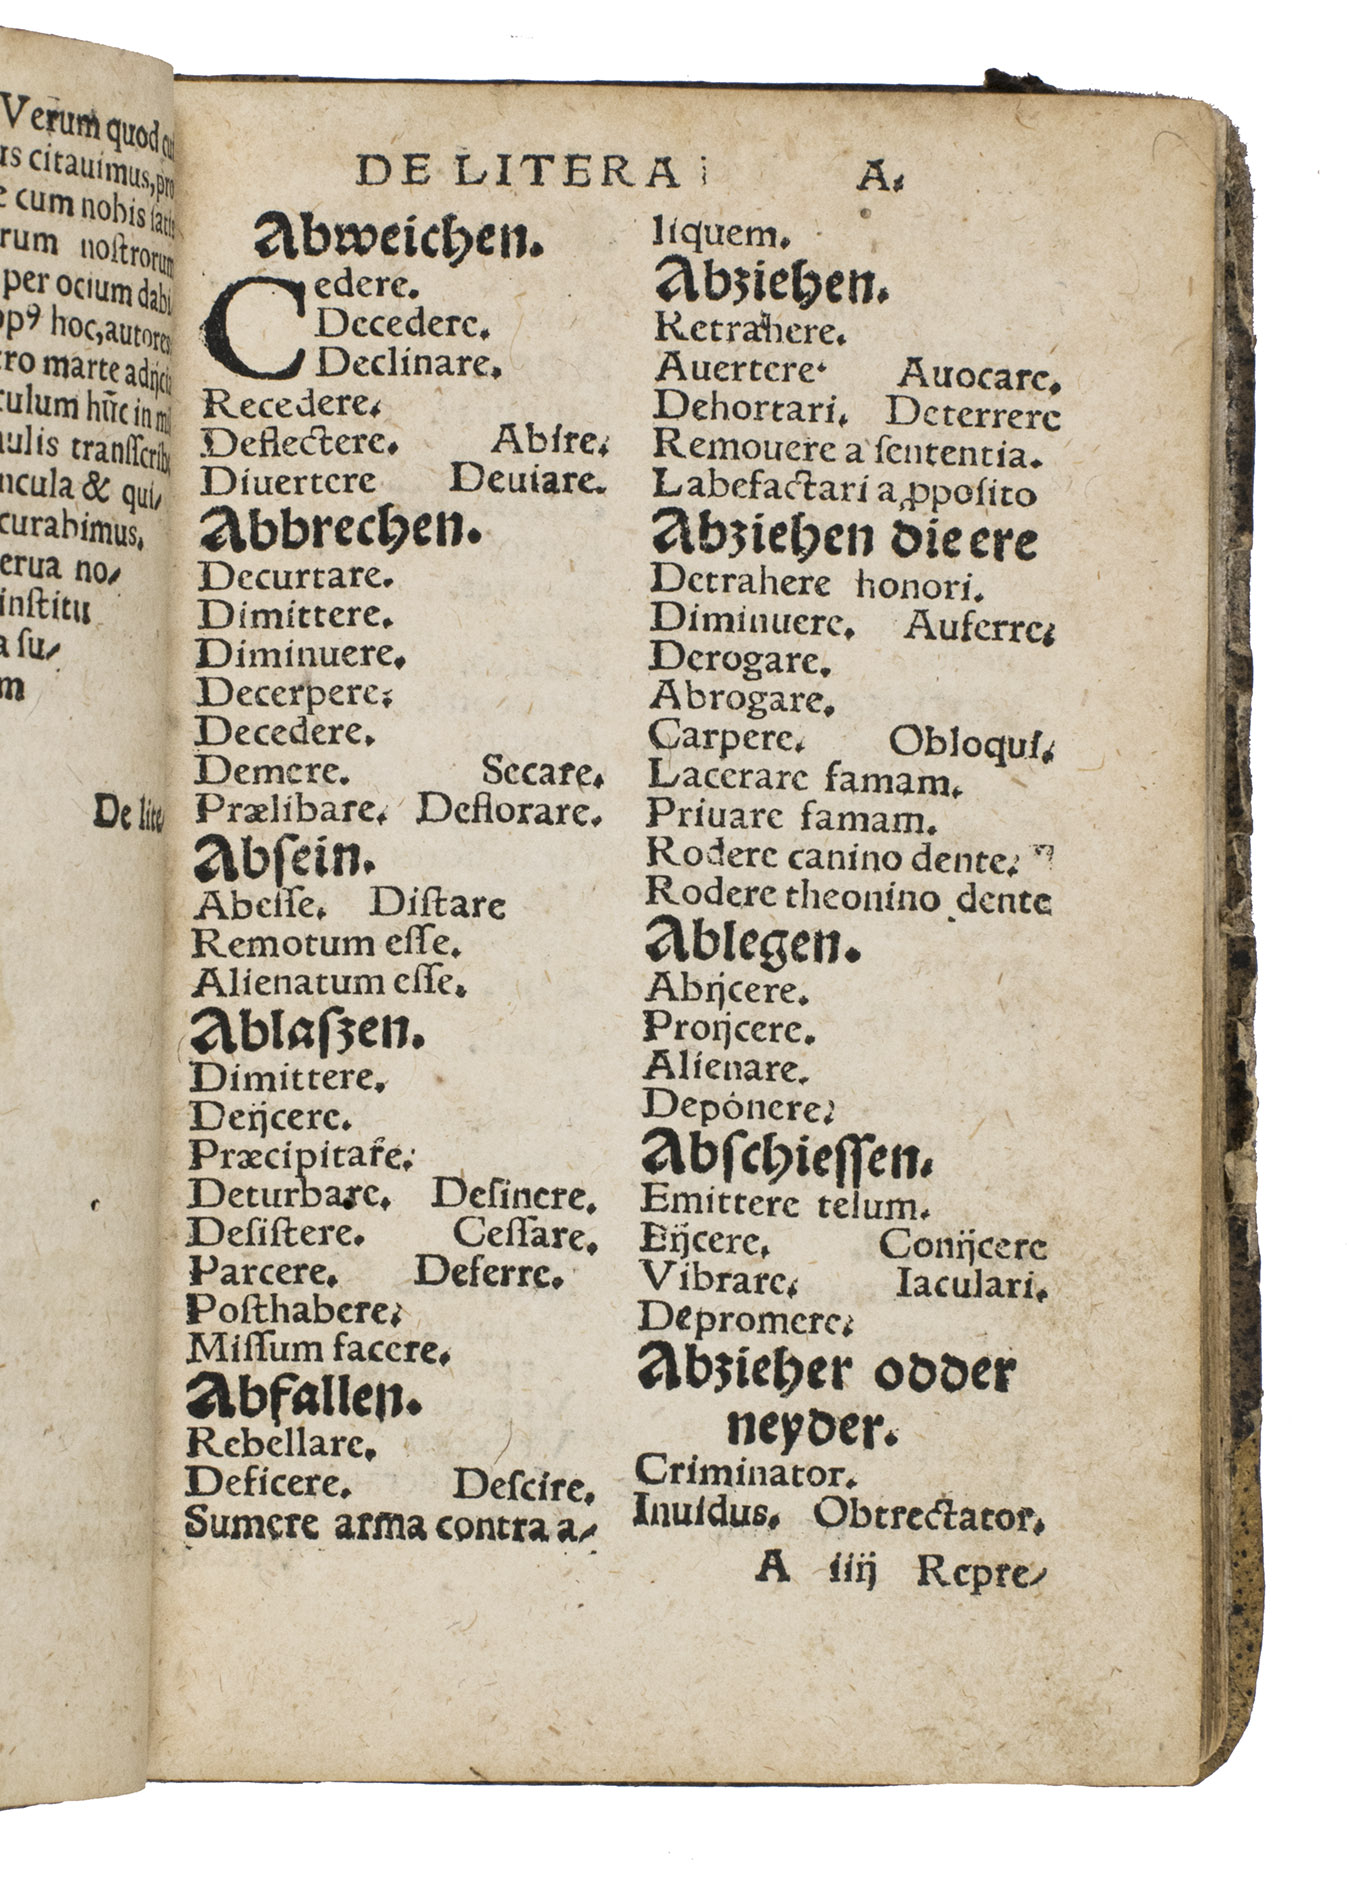 Verum quod
us citauimus,
cum nobis
rum nostrorum
per ocium dabi
hoc, autores
tro marte
culum hūc in
transscrib
ncula & qui⸗
curabimus.
erua no⸗
institu
a su⸗
m
De lite
DE LITERA A.
Abweichen.
Cedere.
Decedere.
Declinare.
Recedere.
Deflectere. Abire.
Diuertere Deuiare.
Abbrechen.
Decurtare.
Dimittere.
Diminuere.
Decerpere.
Decedere.
Demere. Secare.
Prælibare. Deflorare.
Absein.
Abesse. Distare
Remotum esse.
Alienatum esse.
Ablaszen.
Dimittere.
Deijcere.
Præcipitare.
Deturbare. Desinere.
Desistere. Cessare.
Parcere. Deferre.
Posthabere.
Missum facere.
Abfallen.
Rebellare.
Deficere. Descire.
Sumere arma contra a⸗
liquem.
Abziehen.
Retrahere.
Auertere. Auocare.
Dehortari. Deterrere
Remouere a sententia.
Labefactari a ꝓposito
Abziehen die ere
Detrahere honori.
Diminuere. Auferre.
Derogare.
Abrogare.
Carpere. Obloqui.
Lacerare famam.
Priuare famam.
Rodere canino dente.
Rodere theonino dente
Ablegen.
Abijcere.
Proijcere.
Alienare.
Depónere.
Abschiessen.
Emittere telum.
Eijcere. Conijcere
Vibrare. Iaculari.
Depromere.
Abzieher odder
neyder.
Criminator.
Inuidus. Obtrectator.
A iiij Repre⸗